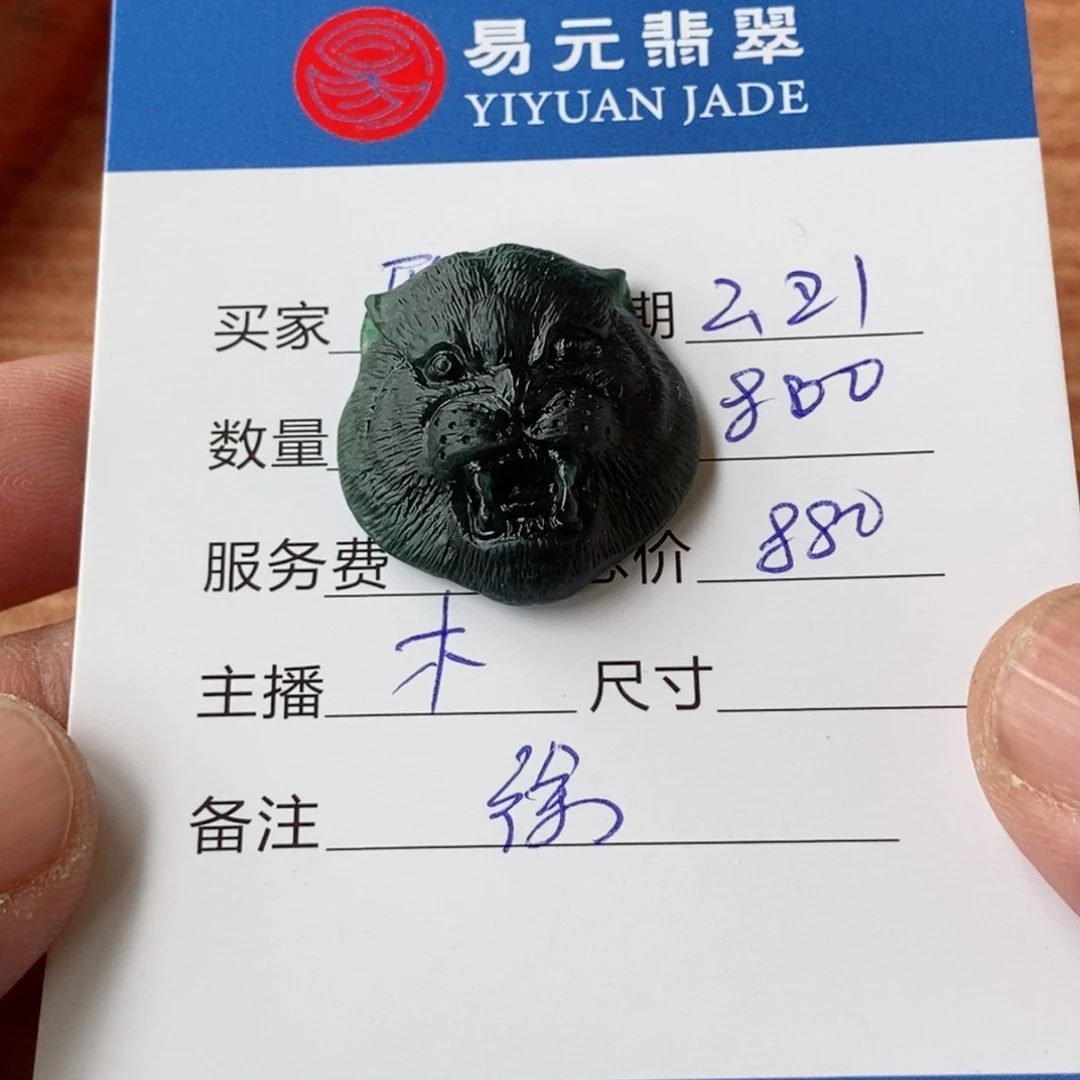 易元翡翠
YIYUAN JADE
买家 期 2.21
数量 800
服务费 总价 880
主播 木 尺寸
备注 徐